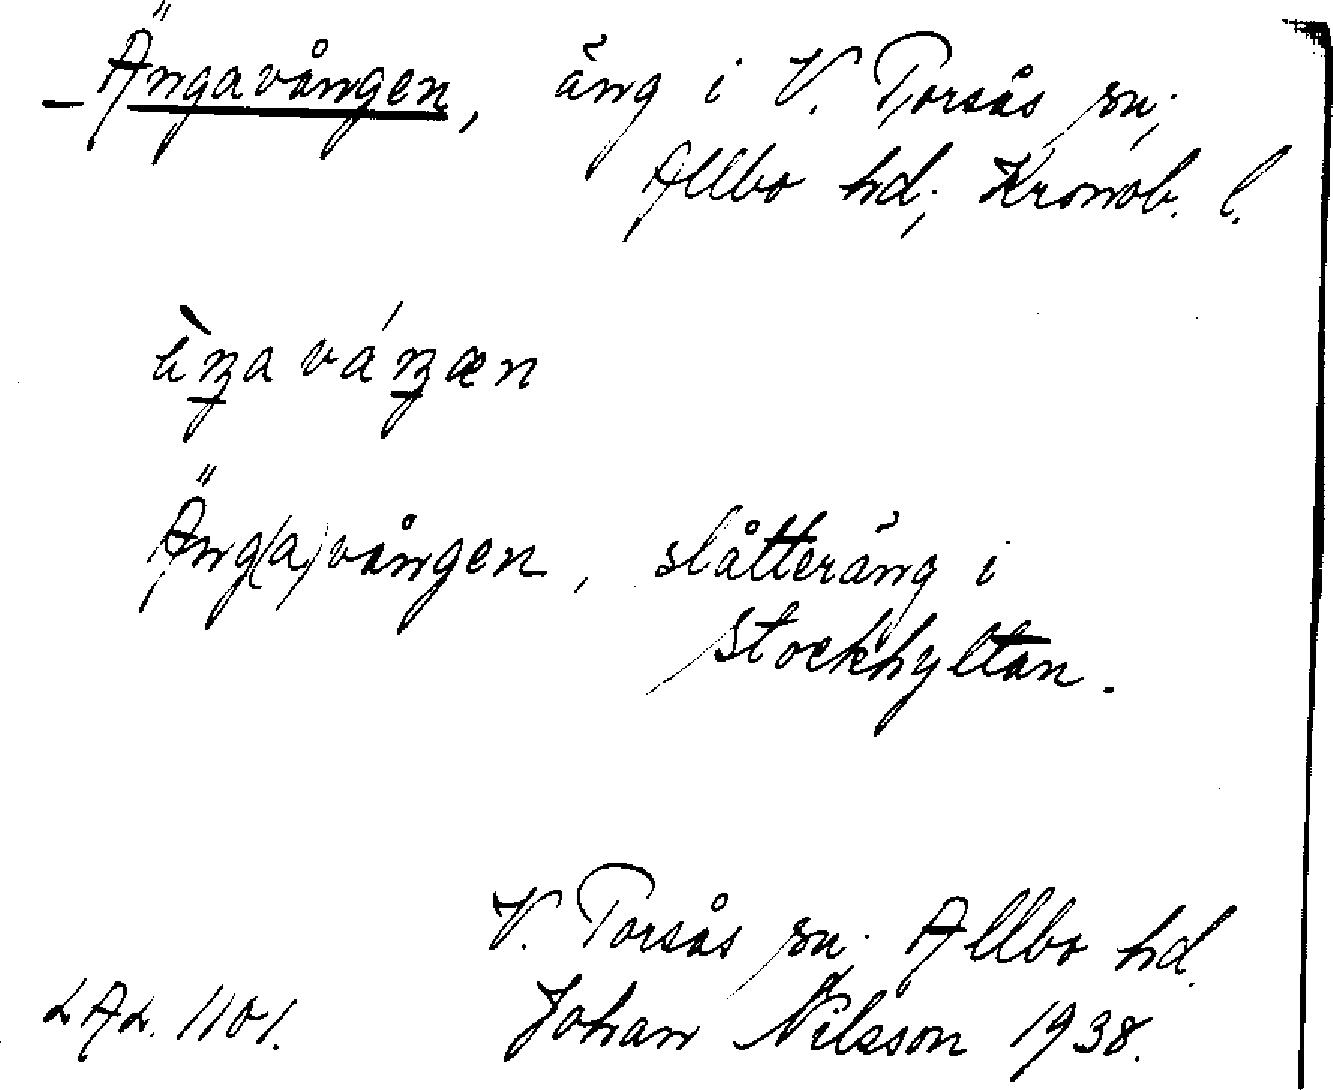 Ängavången, äng i V. Torsås sn,
Allbo hd, Kronob. l.
Äng(a)vången, slåtteräng i
Stockhyltan.
V. Torsås sn. Allbo hd.
LAL. 1101. Johan Nilsson 1938.